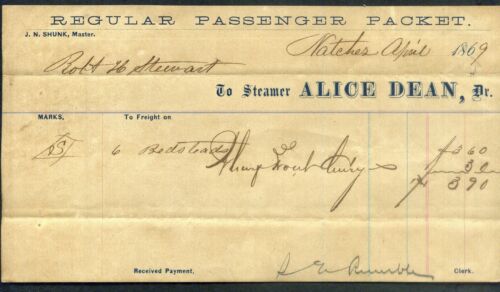 REGULAR PASSENGER PACKET.
J. N. SHUNK, Master.
Natchez April 1869
Robt H Stewart
To Steamer ALICE DEAN, Dr.
MARKS, To Freight on
S 6 Bedsteads 3 60
30
$ 3 90
Received Payment,
Clerk.